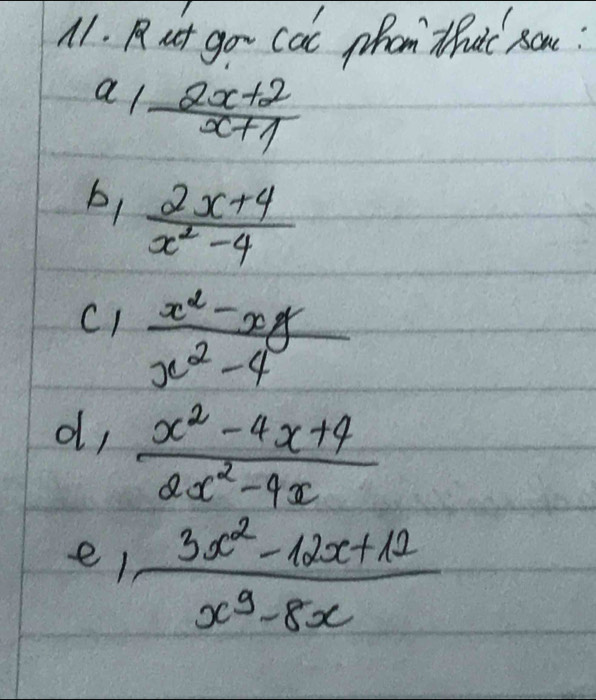 11. Rút gọn các phân thức sau:
a, \frac{2x+2}{x+1}
b, \frac{2x+4}{x²-4}
c, \frac{x²-xy}{x²-4}
d, \frac{x²-4x+4}{2x²-4x}
e, \frac{3x²-12x+12}{x⁹-8x}